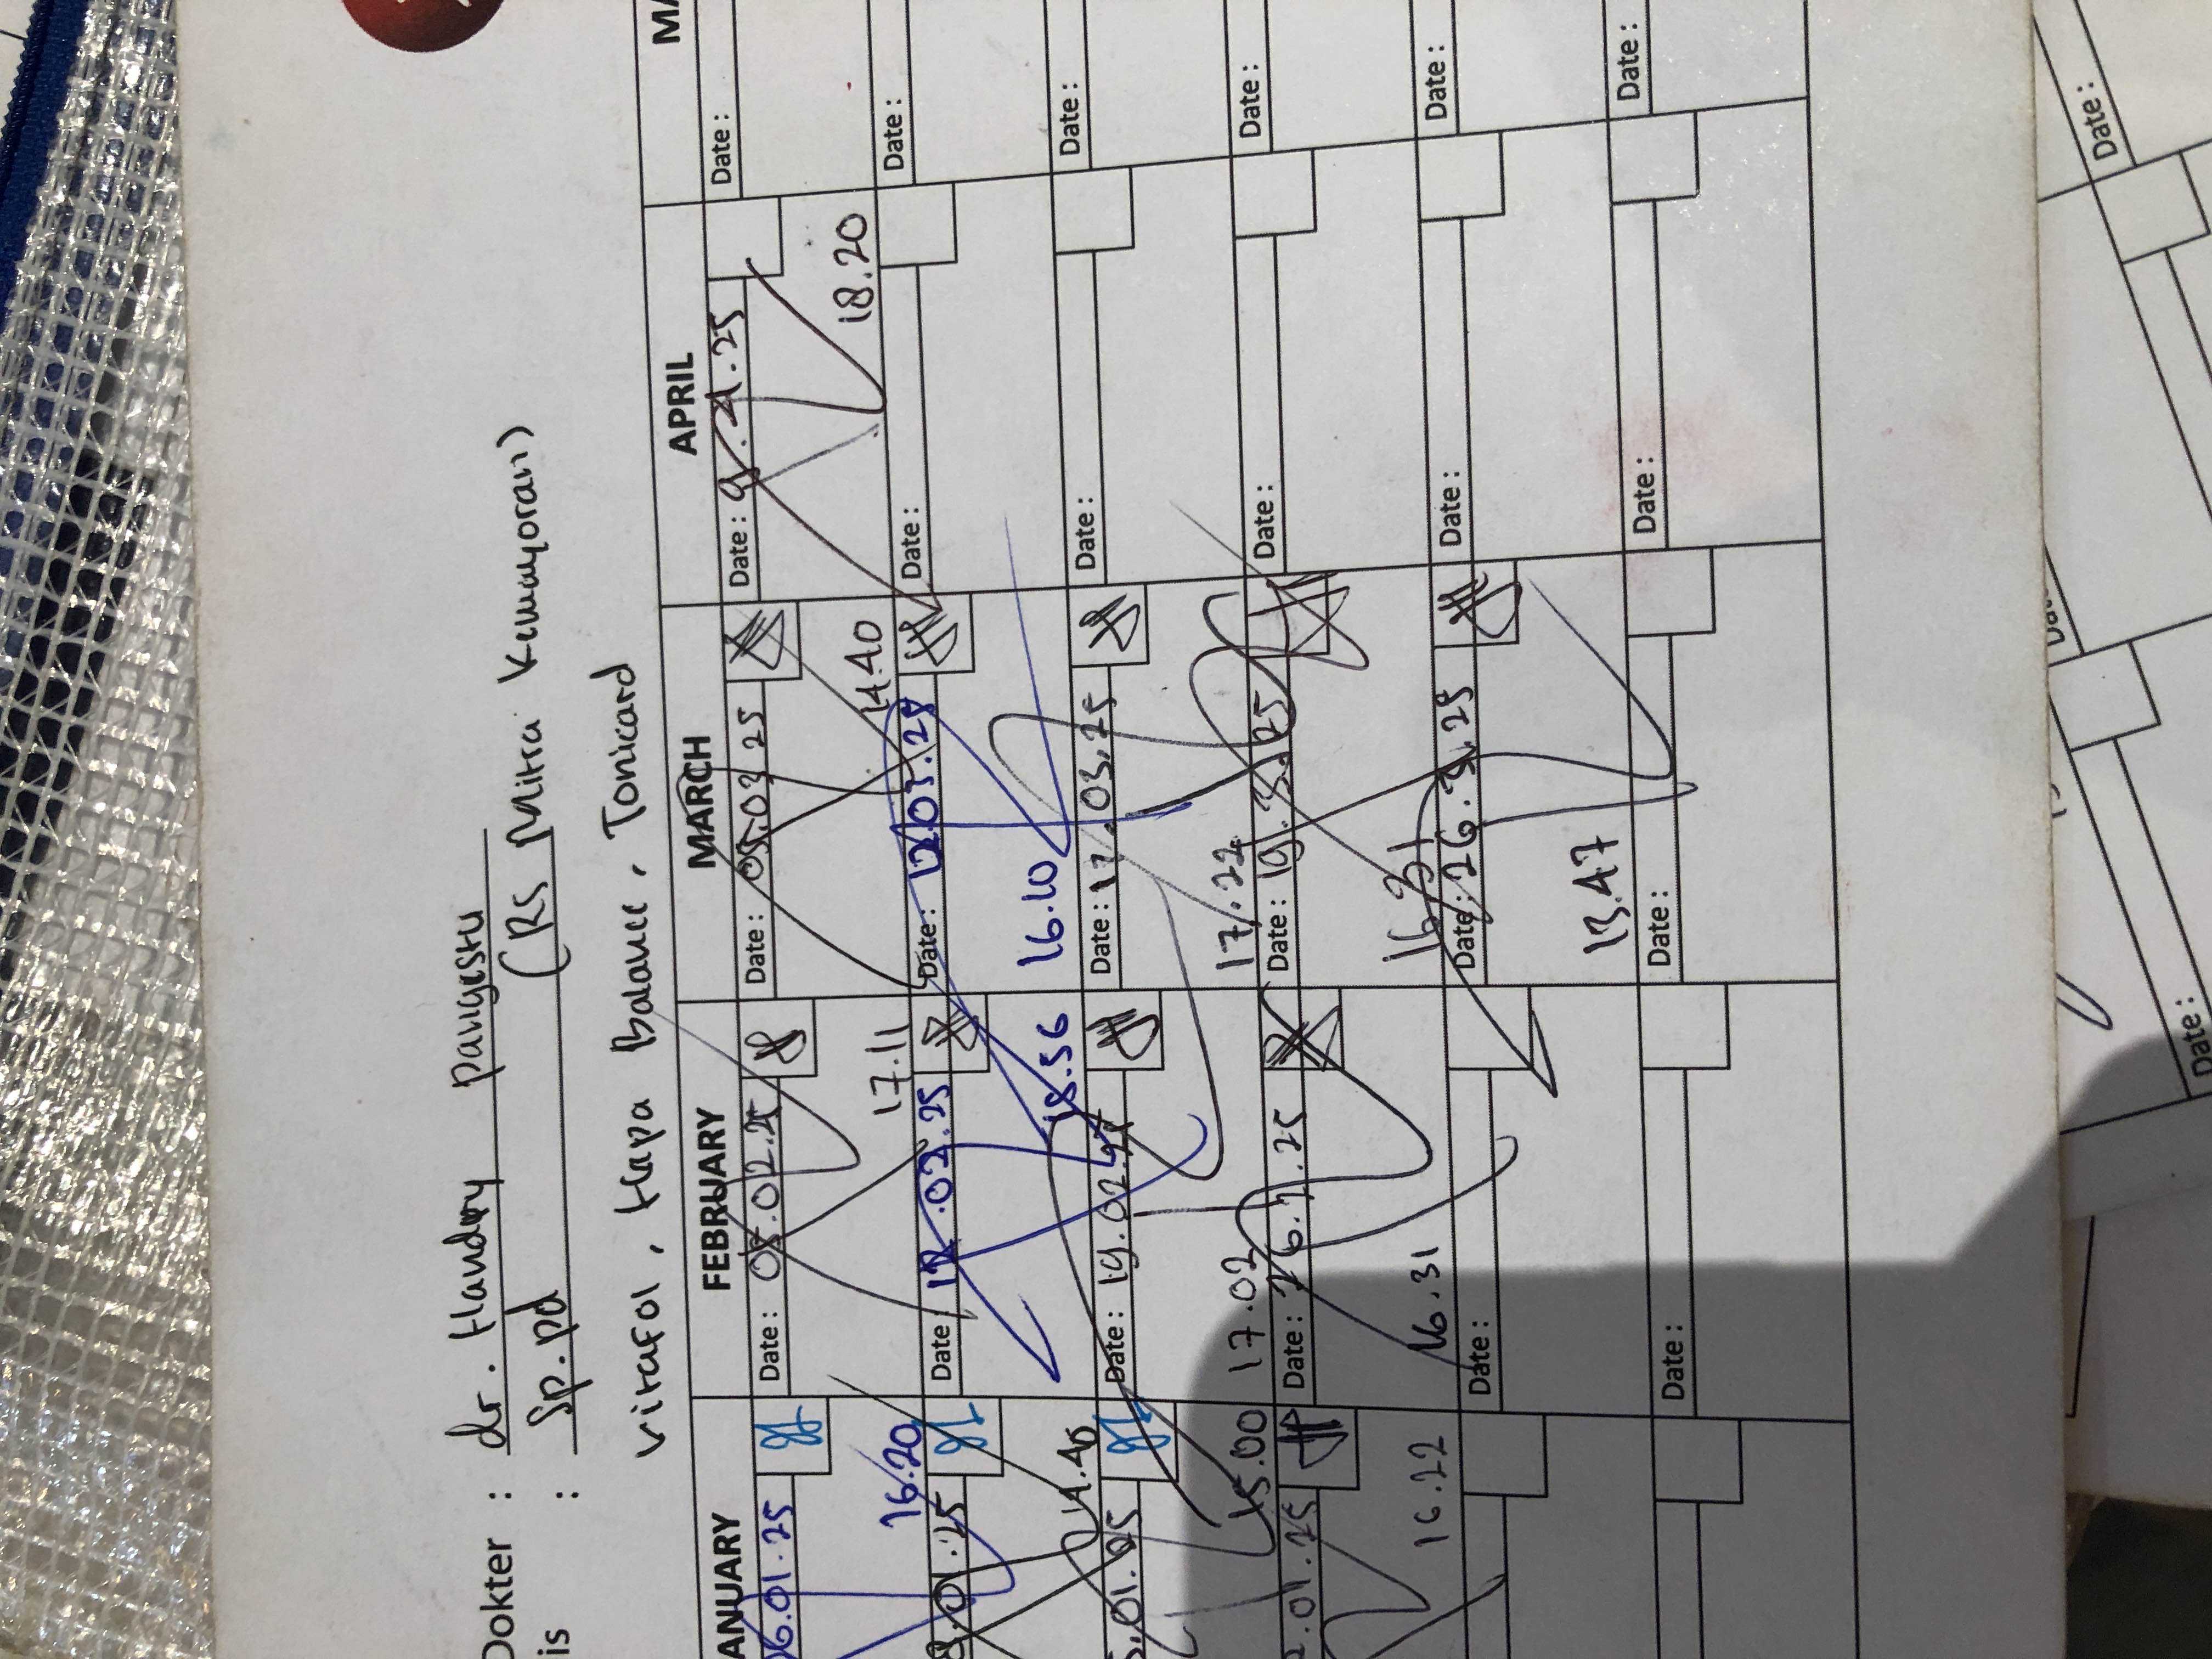 Dokter : dr. Handry Pangestu
is : Sp.pd (RS Mitra Kemayoran)
Vitrafol, Hapa Balance, Tonicard
ANUARY FEBRUARY MARCH APRIL MA
06.01.25 Date : 05.02.25 Date : 05.03.25 Date : 9.4.25 Date :
16.20 17.11 14.40 18.20
8.01.25 Date : 12.02.25 Date : 12.03.25 Date : Date :
14.40 18.56 16.10
5.01.25 Date : 19.02.25 Date : 17.03.25 Date : Date :
15.00 17.02 17.22
2.01.25 Date : 26.2.25 Date : 19.3.25 Date : Date :
16.22 16.31 16.31
Date : Date : 26.3.25 Date : Date :
13.47
Date : Date : Date : Date :
Date :
Date :